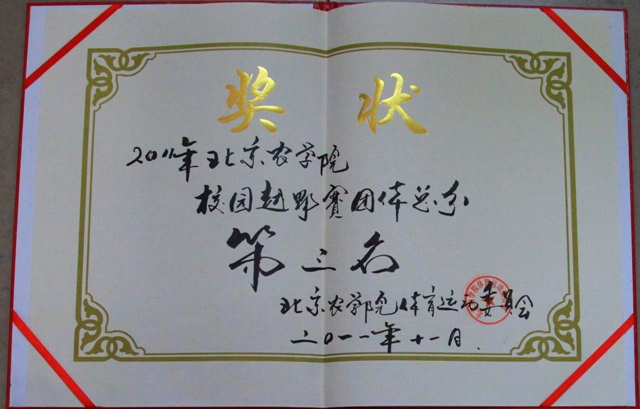 奖状
2011年北京农学院
校园越野赛团体总分
第三名
北京农学院体育运动委员会
二〇一一年十一月